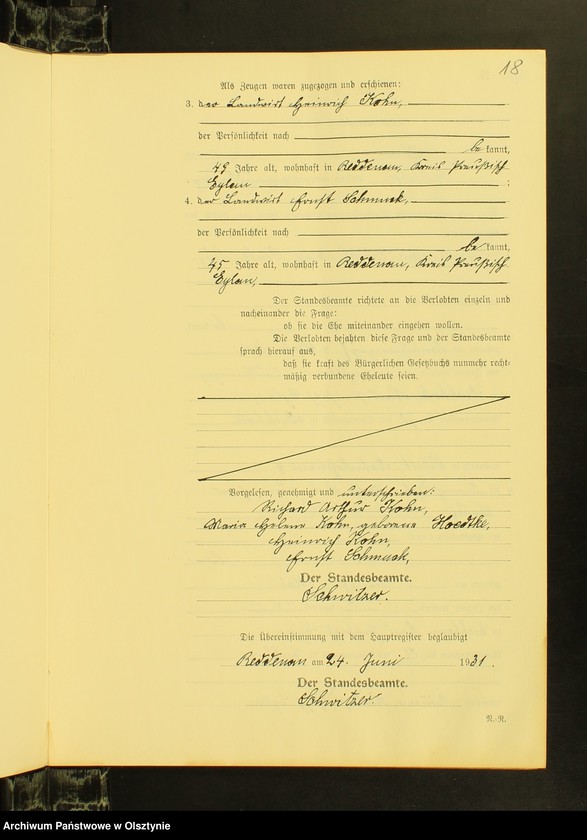 18
Als Zeugen waren zugezogen und erschienen:
3. der Landwirt Heinrich Kohn,
der Persönlichkeit nach
bekannt,
49 Jahre alt, wohnhaft in Reddenau, Kreis Preußisch
Eylau ;
4. der Landwirt Ernst Schmuck,
der Persönlichkeit nach
bekannt,
45 Jahre alt, wohnhaft in Reddenau, Kreis Preußisch
Eylau,
Der Standesbeamte richtete an die Verlobten einzeln und
nacheinander die Frage:
ob sie die Ehe miteinander eingehen wollen.
Die Verlobten bejahten diese Frage und der Standesbeamte
sprach hierauf aus,
daß sie kraft des Bürgerlichen Gesetzbuchs nunmehr recht-
mäßig verbundene Eheleute seien.
Vorgelesen, genehmigt und unterschrieben:
Richard Arthur Kohn,
Maria Helene Kohn, geborene Hoedtke,
Heinrich Kohn,
Ernst Schmuck,
Der Standesbeamte.
Schwitzer.
Die Übereinstimmung mit dem Hauptregister beglaubigt
Reddenau am 24. Juni 1931.
Der Standesbeamte.
Schwitzer.
N.-R.
Archiwum Państwowe w Olsztynie